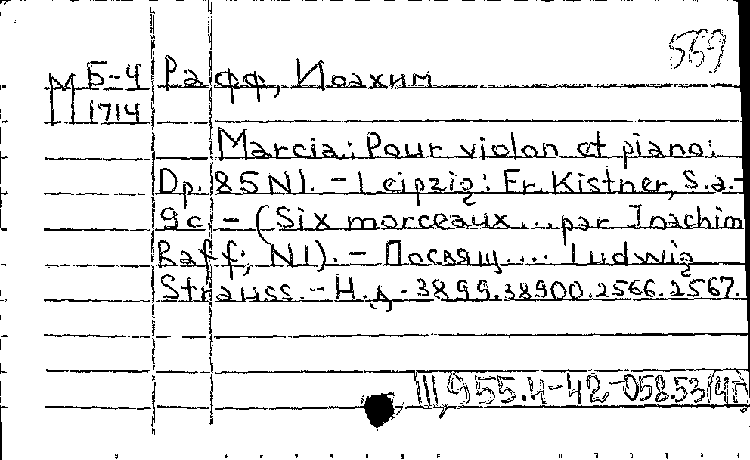 569
М Б-4 Рафф, Иоахим
1714
Marcia: Pour violon et piano:
Op. 85 N1. - Leipzig: Fr. Kistner, s.a.-
9с. - (Six morceaux... par Joachim
Raff; N1). - Посвящ.... Ludwig
Strauss. - Н.д. 3899.38900.2566.2567.
III, 955.4-42-058.53(4Г)